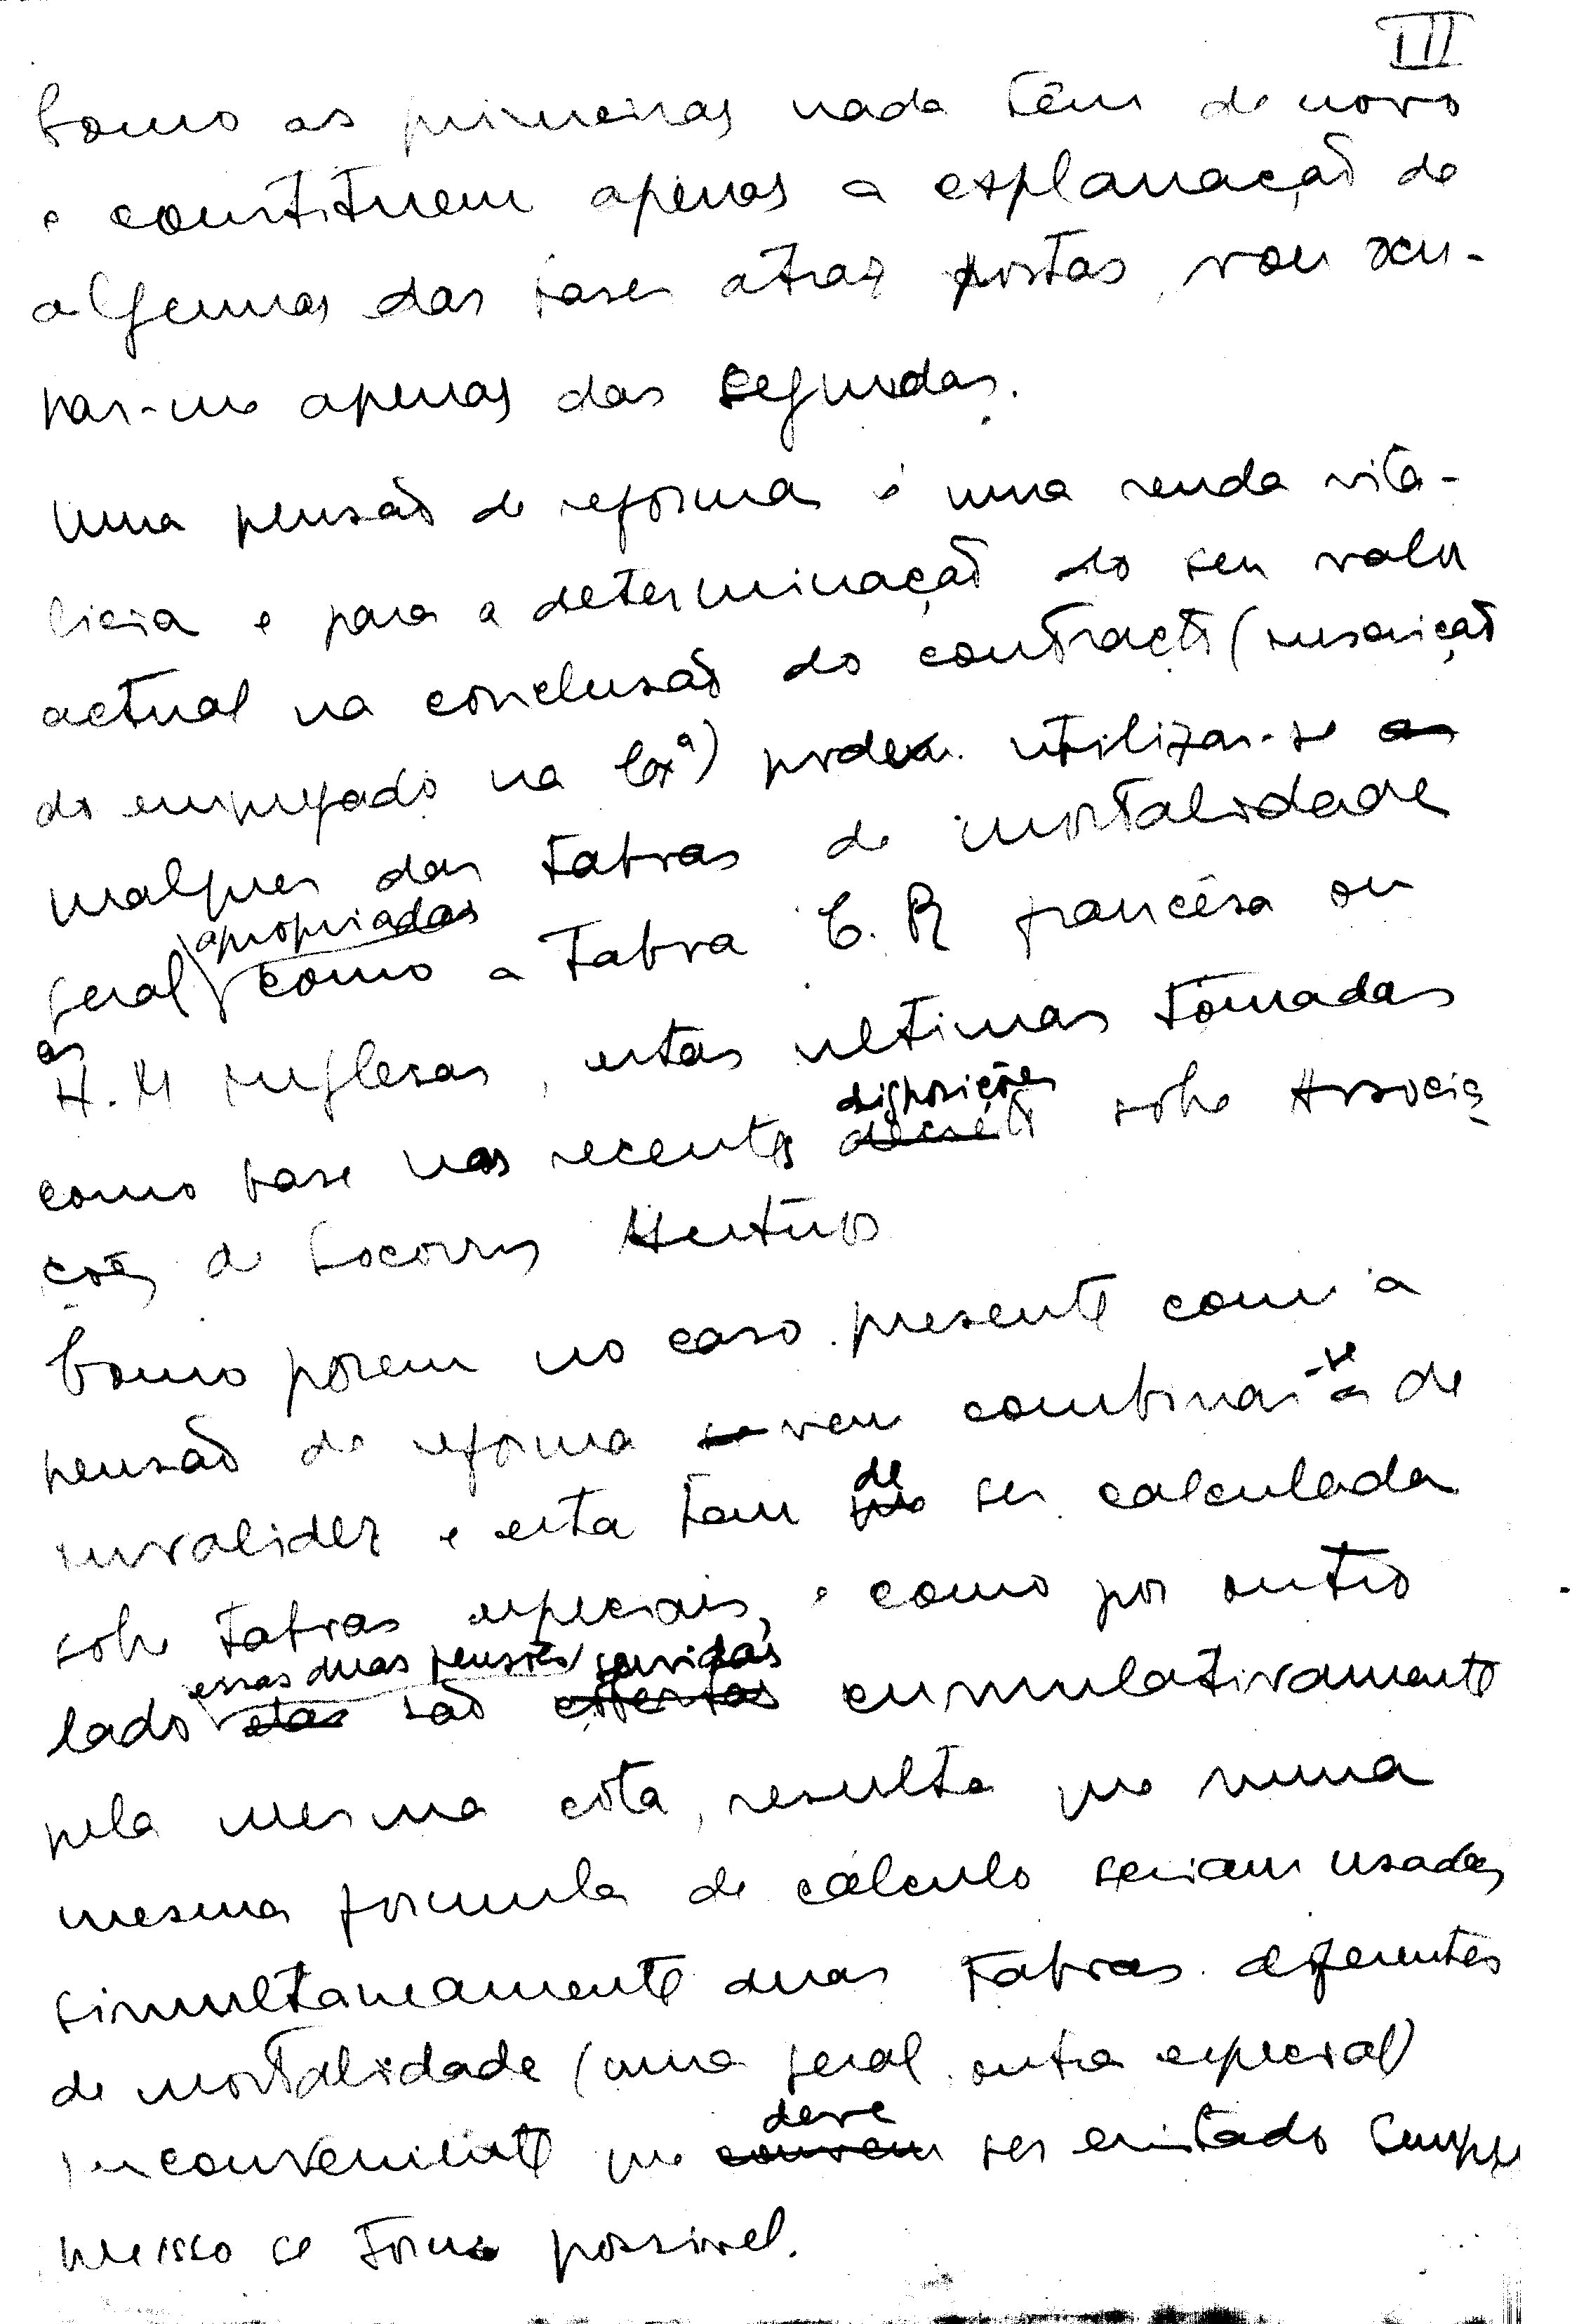 III
Como as primeiras nada têm de novo
e constituem apenas a explanação de
algumas das bases atraz postas, vou ocu-
par-me apenas das segundas.
Uma pensão de reforma é uma renda vita-
licia e para a determinação do seu valor
actual na conclusão do contracto (inscrição
do empregado na Cxª) podem utilizar-se as
qualquer das taboas de mortalidade
geral apropriadas como a Taboa C. R francêsa ou
as H. M inglesas, estas ultimas tomadas
como base nas recentes disposições decreto sobre Associa
ções de Socorros Mutuos
Como porem no caso presente com a
pensão de reforma se vem combinar-se a de
invalidez e esta tem de que ser calculada
sobre taboas especiais, e como por outro
lado essas duas pensões estas são servidas ofertas cumulativamente
pela mesma cóta, resulta que numa
mesma formula de cálculo seriam usadas
simultaneamente duas taboas diferentes
de mortalidade (uma geral outra especial)
inconveniente que deve convem ser evitado sempre
que isso se torne possivel.